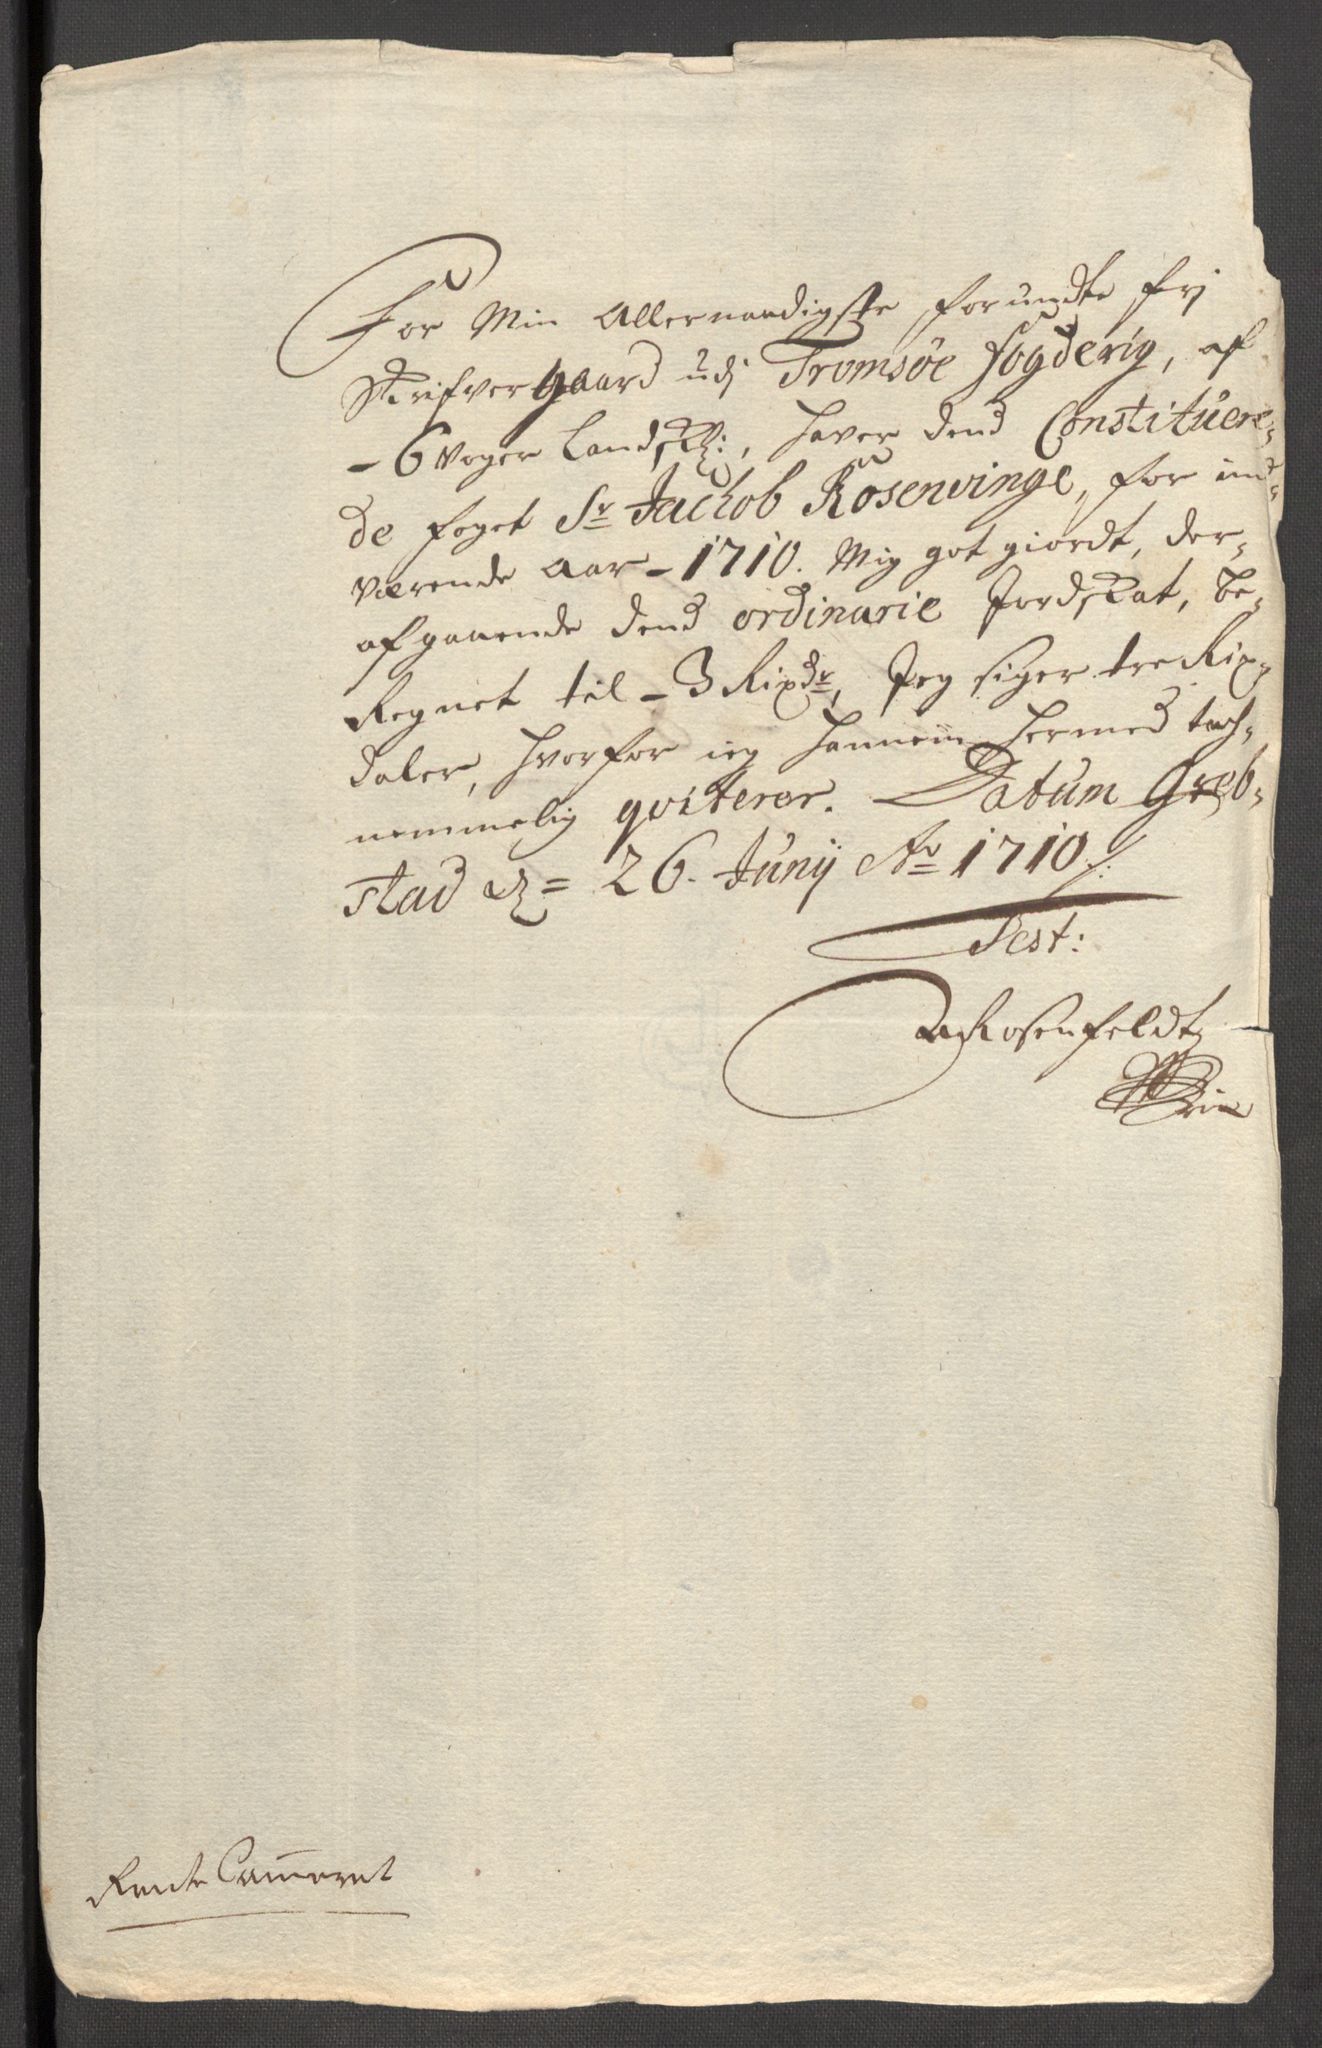 For Min Allernaadigste forundte frj
Skrifver gaard udj Tromsøe fogderig, af
- 6 voger Landskℓ:, hafver dend Constituere-
de foget Sr Jachob Rosenvinge, for ind-
værende aar - 1710. Mig got giordt, der-
afgaaende dend ordinarie Jordskat, be-
Regnet til - 3 Rixdr, Jeg siger tre Rix-
daler, hvorfor ieg hannem hermed tach-
nemmelig qviterer. Datum Greb-
stad d = 26. Junij Ao 1710 /:
Test:
Rosenfeldt
Rente Cammeret